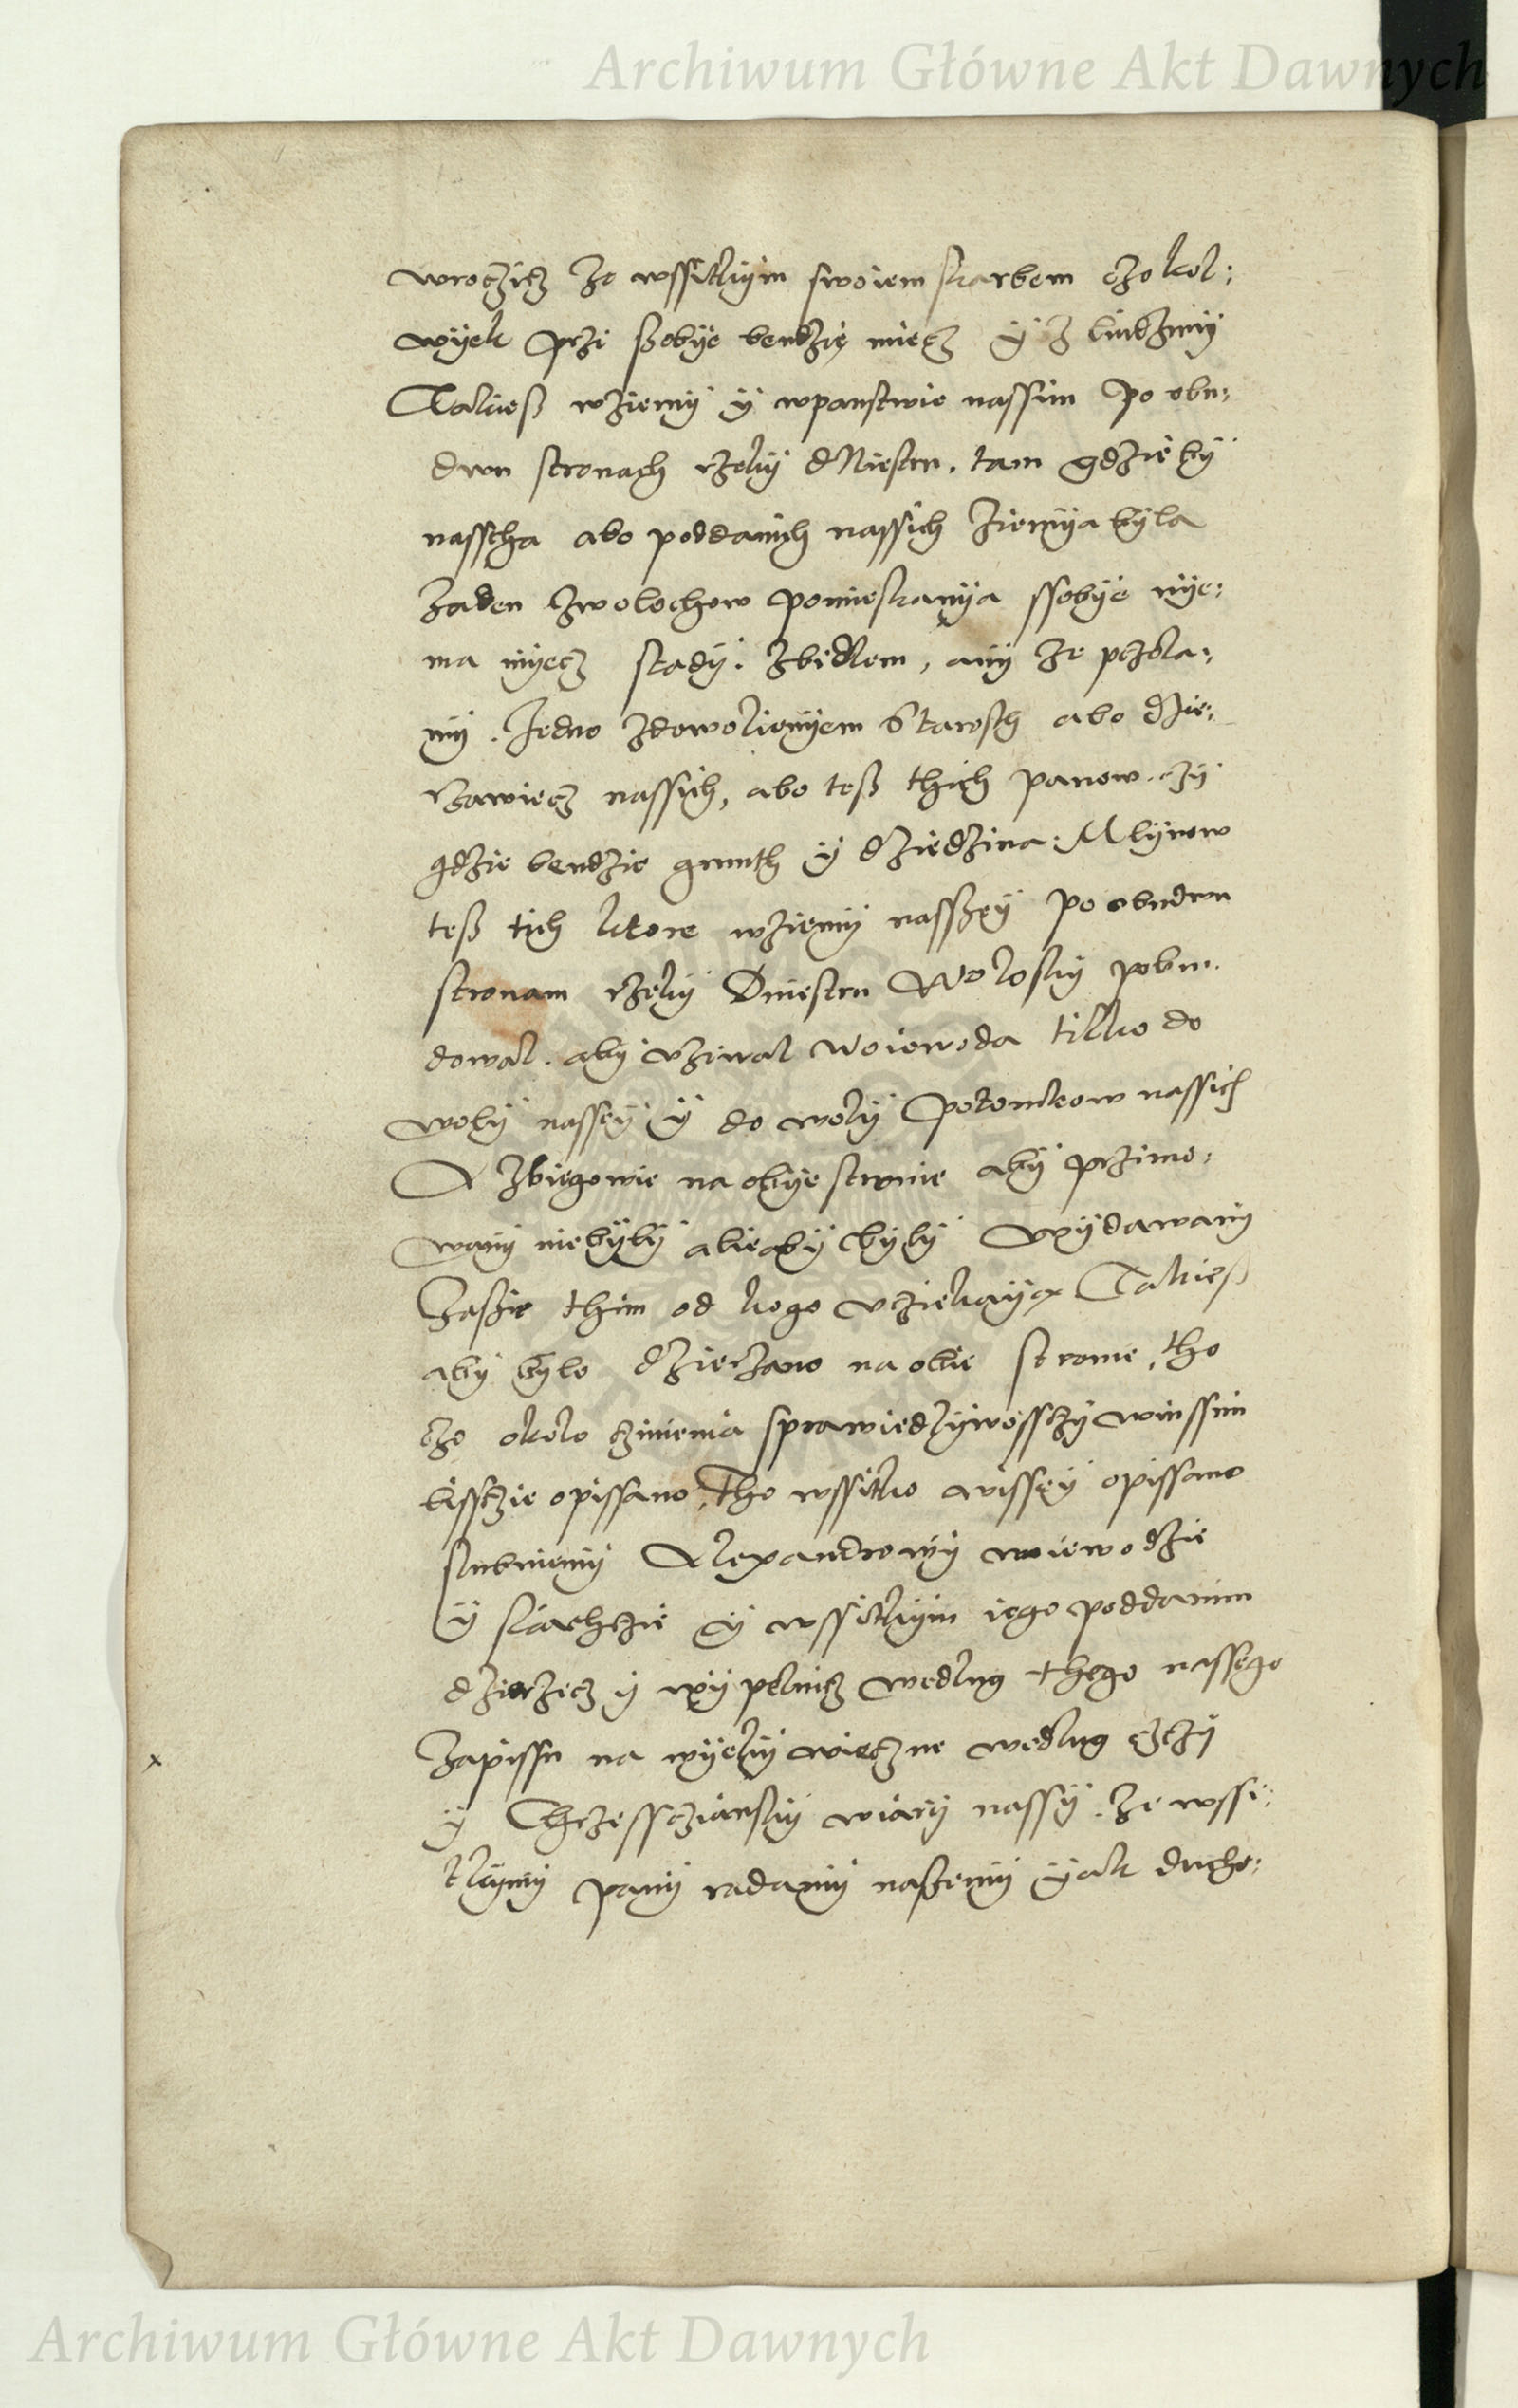 Archiwum Główne Akt Dawnych
wroczicz ze wssitkiym swoiem skarbem czokol:
wyek przi ßobÿe bendzie miecz ÿ z liudzmÿ
Takieß wziemÿ ÿ wpanstwie nassim po obu:
dwu stronach rzekÿ dNiestru. tam gdziebÿ
nasscha abo poddanich nassich ziemÿa bÿla
Zaden zwolochow pomieskanÿa ssobÿe nÿe:
ma mÿecz stadÿ. zbidlem, anÿ ze pczola:
mÿ. Jedno zdowolienÿem Starosth abo dzie:
rzawiecz nassich, abo teß thich panow. czÿ
gdzie bendzie grunth ÿ dziedzina: Mlÿnow
teß tich ktore wziemÿ nasszeÿ po obudwu
stronam rzekÿ Dniestru Woloskÿ pobu:
dowal. abÿ vziwal woiewoda tilko do
wolÿ nasseÿ ÿ do wolÿ Potomkow nassich
A zbiegowie na obÿe stronie abÿ przimo:
wanÿ niebÿlÿ alie abÿ bÿlÿ wÿdawanÿ
Zaßie thim od kogo vciekaÿą Takieß
abÿ bÿlo dzierzano na obie stronie, tho
czo okolo czinienia sprawiedlÿwossczÿ winssim
lisscie opissano, tho wssitko wisseÿ opissano
slubuiemÿ Alexandrowÿ woiewodzie
ÿ slachczie ÿ wssitkÿm iego poddanim
dzierzecz ÿ wÿpelnicz wedlug thego nassego
Zapissu na wÿekÿ wieczne wedlug czczÿ
ÿ Chrzessczianskiÿ wiarÿ nassÿ. Ze wssi:
tkÿmÿ panÿ radamÿ naszemÿ ÿak ducho:
Archiwum Główne Akt Dawnych